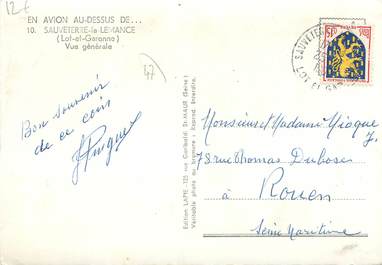 12€
EN AVION AU-DESSUS DE...
10. SAUVETERRE-la-LEMANCE
(Lot-et-Garonne)
Vue générale
47
Bon souvenir
de ce coin
Edition LAPIE - 125 rue Garibaldi St-MAUR (Seine)
Véritable photo au bromure - Reprod. Interdite.
SAUVETER
LOT-ET-GAR
Monsieur et Madame
78 rue Thomas Dubosc
à
Rouen
Seine Maritime